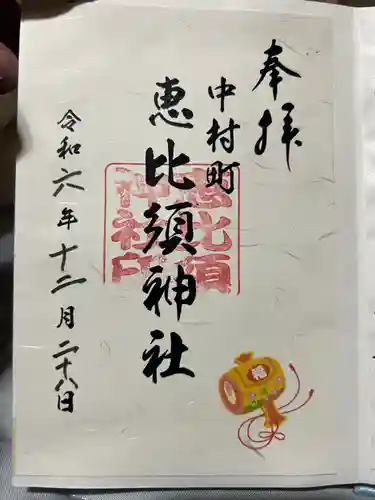 奉拝
中村町
恵比須神社
恵比須
神社印
令和六年十二月二十八日